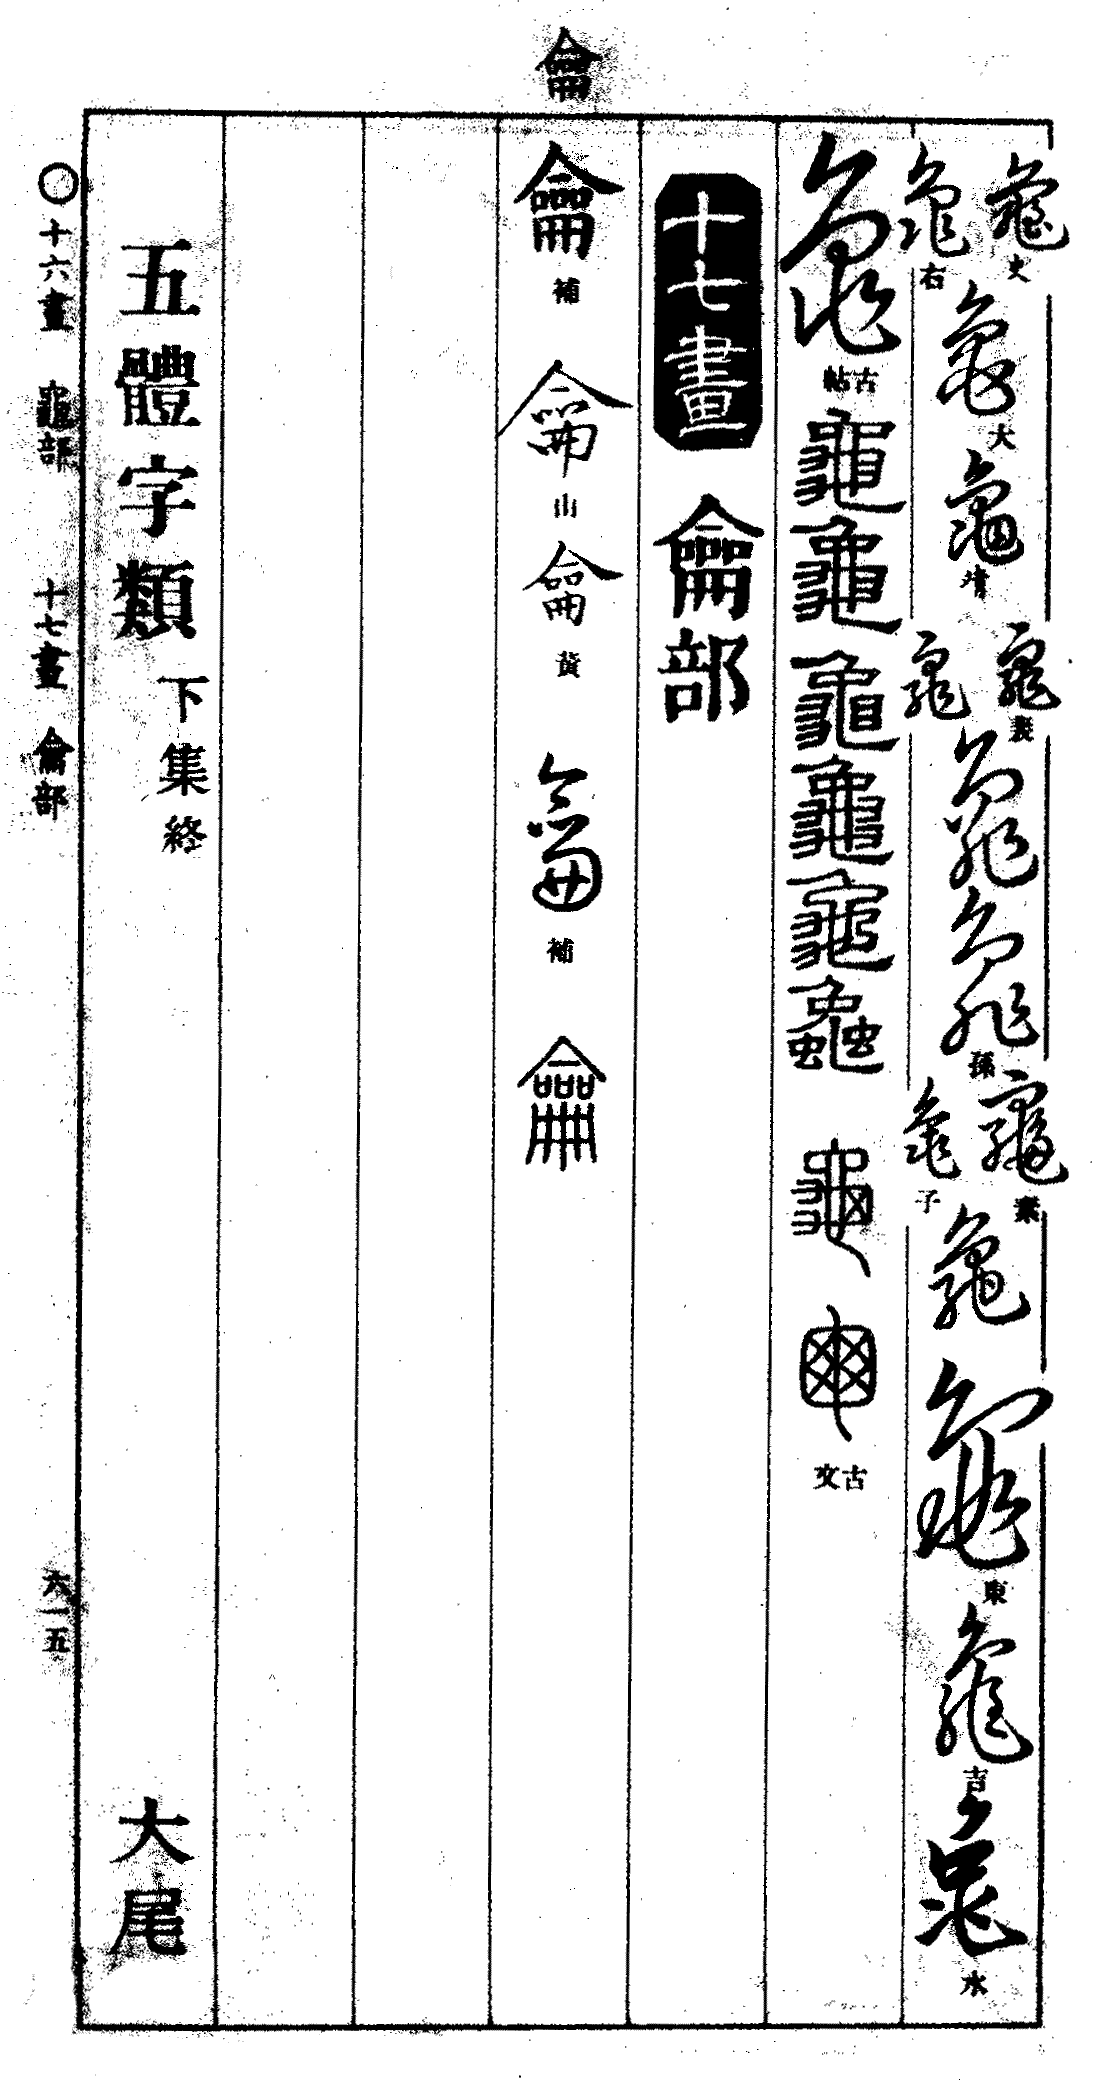 龠
龜 史 龜 右
龜 大
龜 靖
龜 表 龜
龜
龜 孫
龜 素 龜 子
龜
龜 東
龜 吉
龜 水
龜 古帖
龜
龜
龜
龜
龜
龜
龜
龜 古文
十七畫 龠部
龠 補 龠 山 龠 黃 龠 補 龠
五體字類 下集終 大尾
○十六畫 龜部 十七畫 龠部 六一五